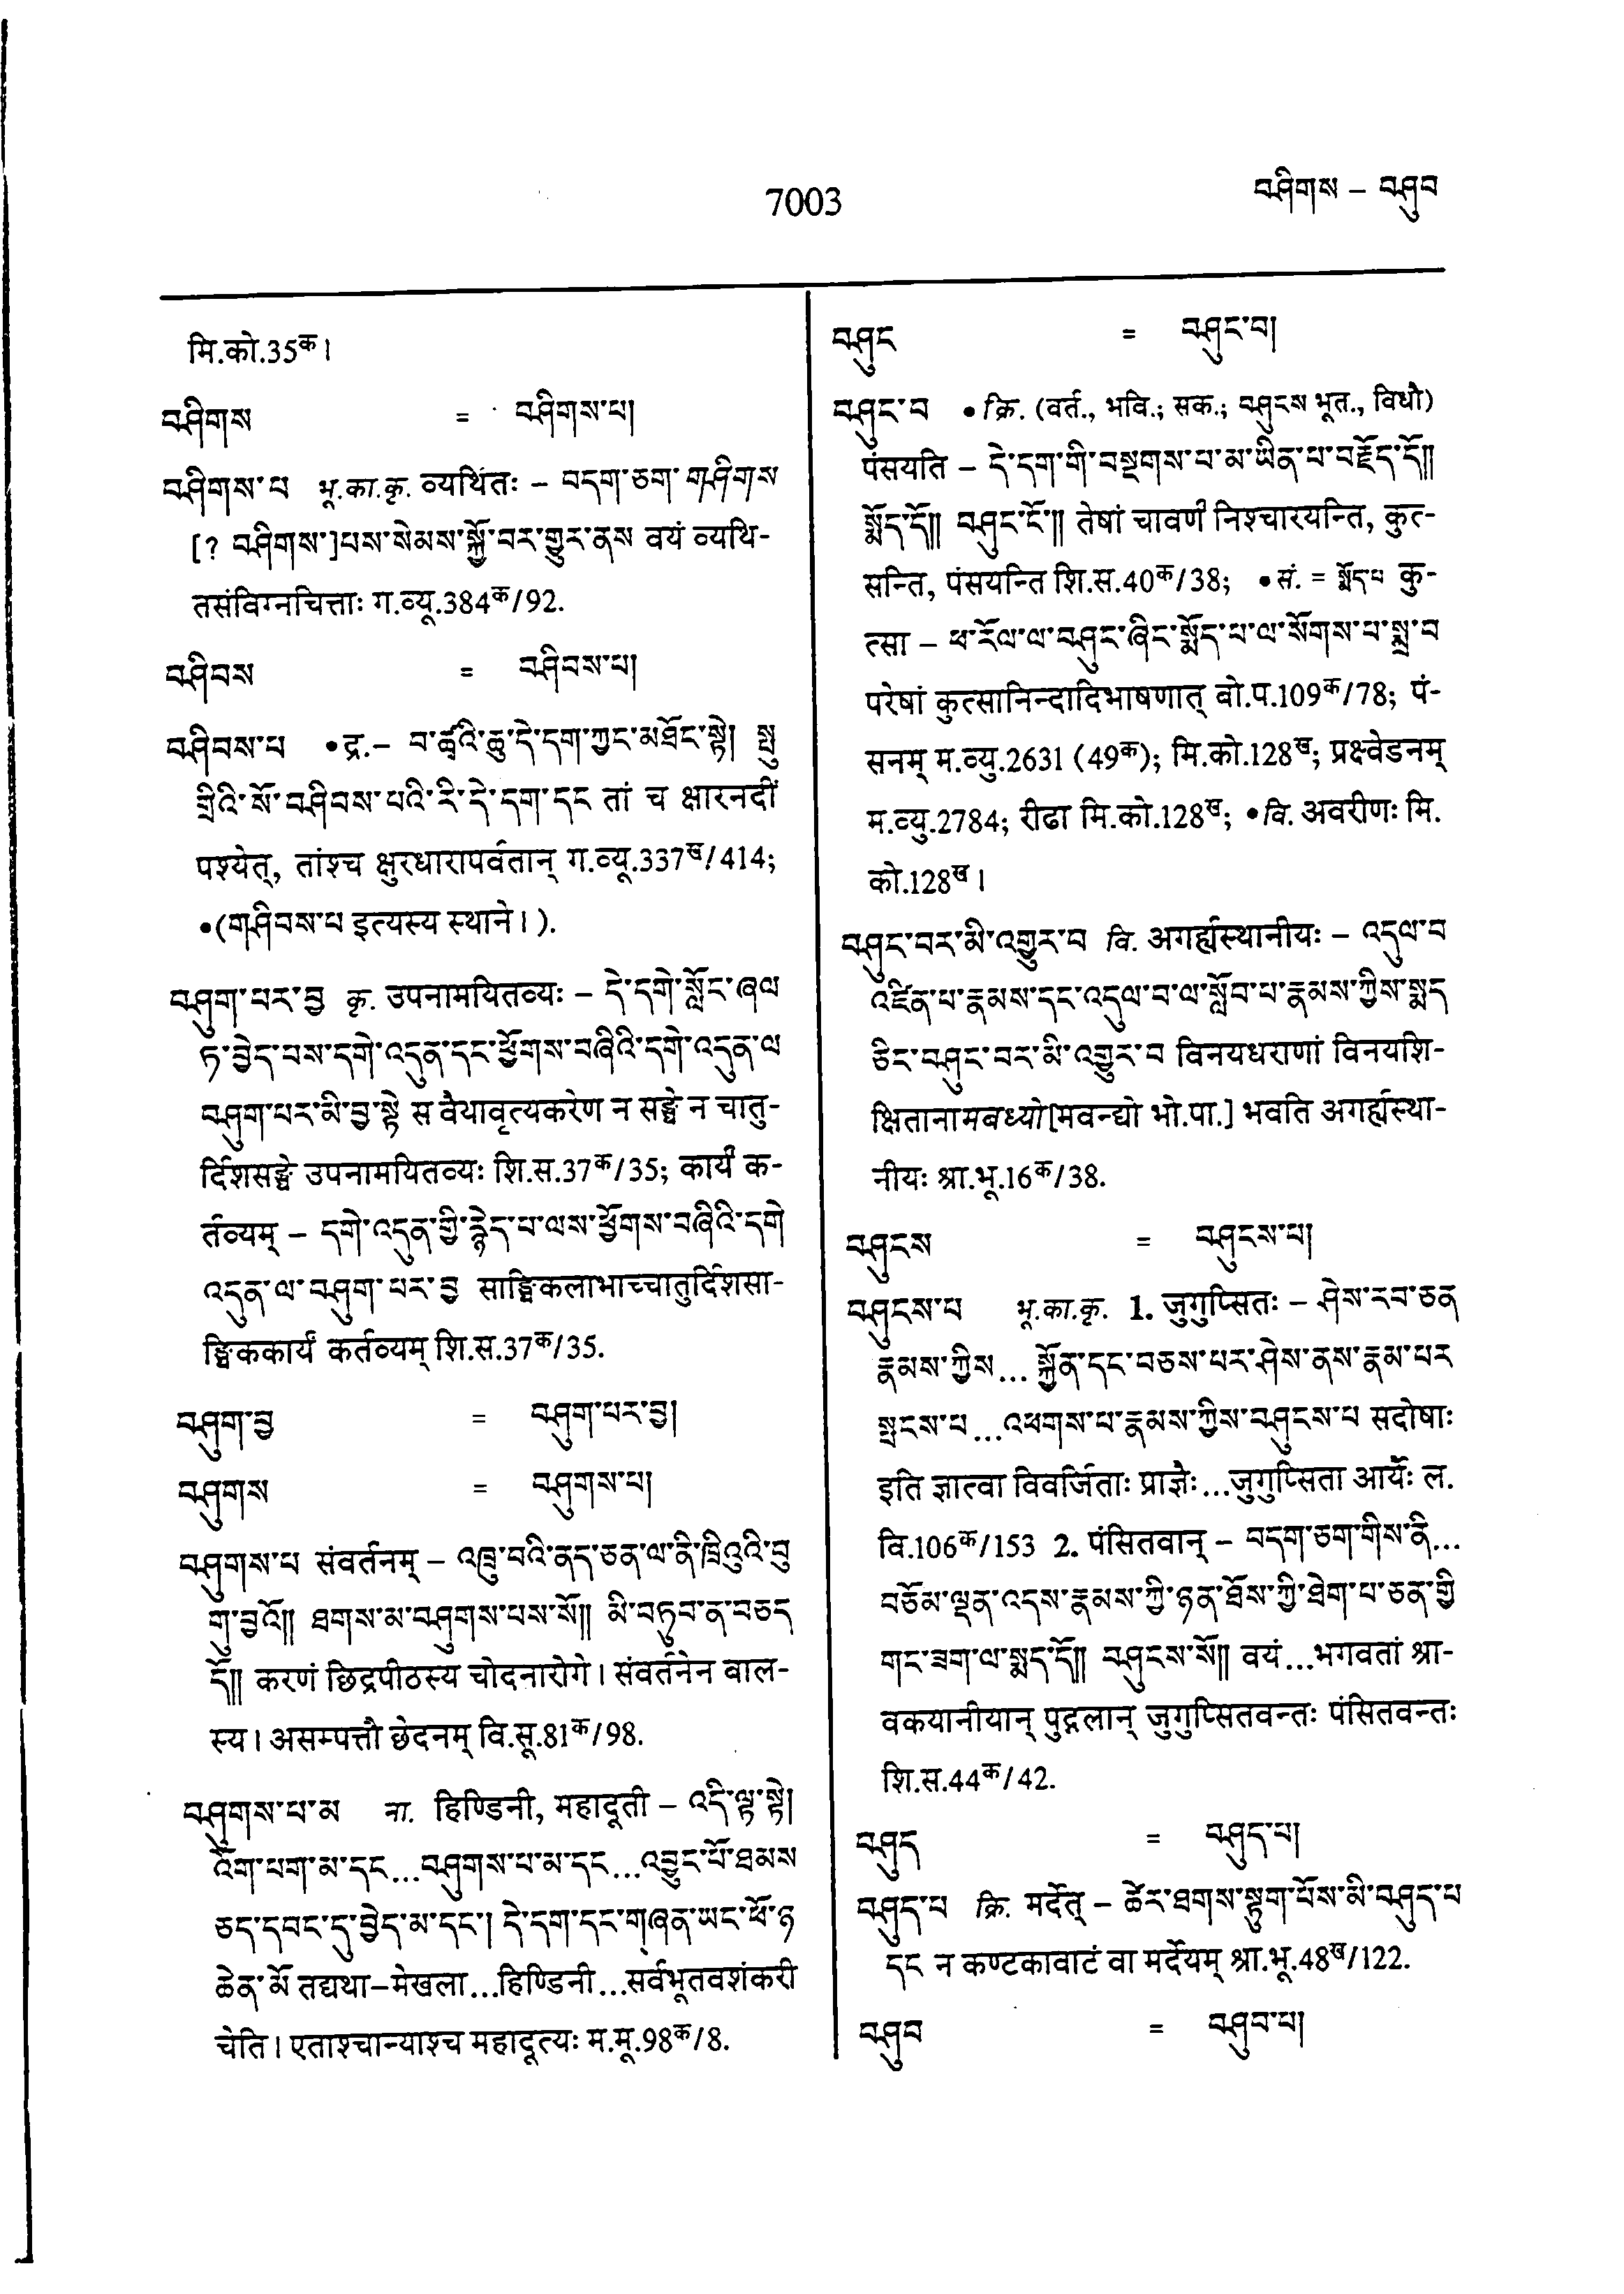 7003
བཤིགས – བཤུབ
मि.को.35क।
བཤིགས = བཤིགས་པ།
བཤིགས་པ भू.का.कृ. व्यथितः – བདག་ཅག་གཤིགས
[? བཤིགས་]པས་སེམས་སྐྱོ་བར་གྱུར་ནས वयं व्यथि-
तसंविग्नचित्ताः ग.व्यू.384क/92.
བཤིབས = བཤིབས་པ།
བཤིབས་པ •द्र.– བ་ཚྭའི་ཆུ་དེ་དག་ཀྱང་མཐོང་སྟེ། སྤུ
གྲིའི་སོ་བཤིབས་པའི་རི་དེ་དག་དང तां च क्षारनदीं
पश्येत्, तांश्च क्षुरधारापर्वतान् ग.व्यू.337ख/414;
•(གཤིབས་པ इत्यस्य स्थाने।).
བཤུག་པར་བྱ कृ. उपनामयितव्यः – དེ་དགེ་སློང་ཞལ
ཏ་བྱེད་པས་དགེ་འདུན་དང་ཕྱོགས་བཞིའི་དགེ་འདུན་ལ
བཤུག་པར་མི་བྱ་སྟེ स वैयावृत्यकरेण न सङ्घे न चातु-
र्दिशसङ्घे उपनामयितव्यः शि.स.37क/35; कार्यं क-
र्तव्यम् – དགེ་འདུན་གྱི་རྙེད་པ་ལས་ཕྱོགས་བཞིའི་དགེ
འདུན་ལ་བཤུག་པར་བྱ साङ्घिकलाभाच्चातुर्दिशसा-
ङ्घिककार्यं कर्तव्यम् शि.स.37क/35.
བཤུག་བྱ = བཤུག་པར་བྱ།
བཤུགས = བཤུགས་པ།
བཤུགས་པ संवर्तनम् – འཁྲུ་བའི་ནད་ཅན་ལ་ནི་ཁྲིའུའི་བུ
གུ་བྱའོ།། ཐགས་མ་བཤུགས་པས་སོ།། མི་བཏུབ་ན་བཅད
དོ།། करणं छिद्रपीठस्य चोदनारोगे। संवर्तनेन वाल-
स्य। असम्पत्तौ छेदनम् वि.सू.81क/98.
བཤུགས་པ་མ ना. हिण्डिनी, महादूती – འདི་ལྟ་སྟེ།
འོག་པག་མ་དང...བཤུགས་པ་མ་དང...འབྱུང་པོ་ཐམས
ཅད་དབང་དུ་བྱེད་མ་དང་། དེ་དག་དང་གཞན་ཡང་ཕོ་ཉ
ཆེན་མོ तद्यथा–मेखला...हिण्डिनी...सर्वभूतवशंकरी
चेति। एताश्चान्याश्च महादूत्यः म.मू.98क/8.
བཤུང = བཤུང་བ།
བཤུང་བ •क्रि. (वर्त., भवि.; सक.; བཤུངས भूत., विधौ)
पंसयति – དེ་དག་གི་བསྔགས་པ་མ་ཡིན་པ་བརྗོད་དོ།།
སྨོད་དོ།། བཤུང་ངོ་།། तेषां चावर्णं निश्चारयन्ति, कुत्-
सन्ति, पंसयन्ति शि.स.40क/38; •सं. = སྨོད་པ कु-
त्सा – ཕ་རོལ་ལ་བཤུང་ཞིང་སྨོད་པ་ལ་སོགས་པ་སྨྲ་བ
परेषां कुत्सानिन्दादिभाषणात् बो.प.109क/78; पं-
सनम् म.व्यु.2631 (49क); मि.को.128ख; प्रक्ष्वेडनम्
म.व्यु.2784; रीढा मि.को.128ख; •वि. अवरीणः मि.
को.128ख।
བཤུང་བར་མི་འགྱུར་བ वि. अगर्ह्यस्थानीयः – འདུལ་བ
འཛིན་པ་རྣམས་དང་འདུལ་བ་ལ་སློབ་པ་རྣམས་ཀྱིས་སྨད
ཅིང་བཤུང་བར་མི་འགྱུར་བ विनयधराणां विनयशि-
क्षितानामबध्यो[मवन्द्यो भो.पा.] भवति अगर्ह्यस्था-
नीयः श्रा.भू.16क/38.
བཤུངས = བཤུངས་པ།
བཤུངས་པ भू.का.कृ. 1. जुगुप्सितः – ཤེས་རབ་ཅན
རྣམས་ཀྱིས... སྐྱོན་དང་བཅས་པར་ཤེས་ནས་རྣམ་པར
སྤངས་པ...འཕགས་པ་རྣམས་ཀྱིས་བཤུངས་པ सदोषाः
इति ज्ञात्वा विवर्जिताः प्राज्ञैः...जुगुप्सिता आर्यैः ल.
वि.106क/153 2. पंसितवान् – བདག་ཅག་གིས་ནི...
བཅོམ་ལྡན་འདས་རྣམས་ཀྱི་ཉན་ཐོས་ཀྱི་ཐེག་པ་ཅན་གྱི
གང་ཟག་ལ་སྨད་དོ།། བཤུངས་སོ།། वयं...भगवतां श्रा-
वकयानीयान् पुद्गलान् जुगुप्सितवन्तः पंसितवन्तः
शि.स.44क/42.
བཤུད = བཤུད་པ།
བཤུད་པ क्रि. मर्देत् – ཚེར་ཐགས་སྟུག་པོས་མི་བཤུད་པ
དང न कण्टकावाटं वा मर्देयम् श्रा.भू.48ख/122.
བཤུབ = བཤུབ་པ།